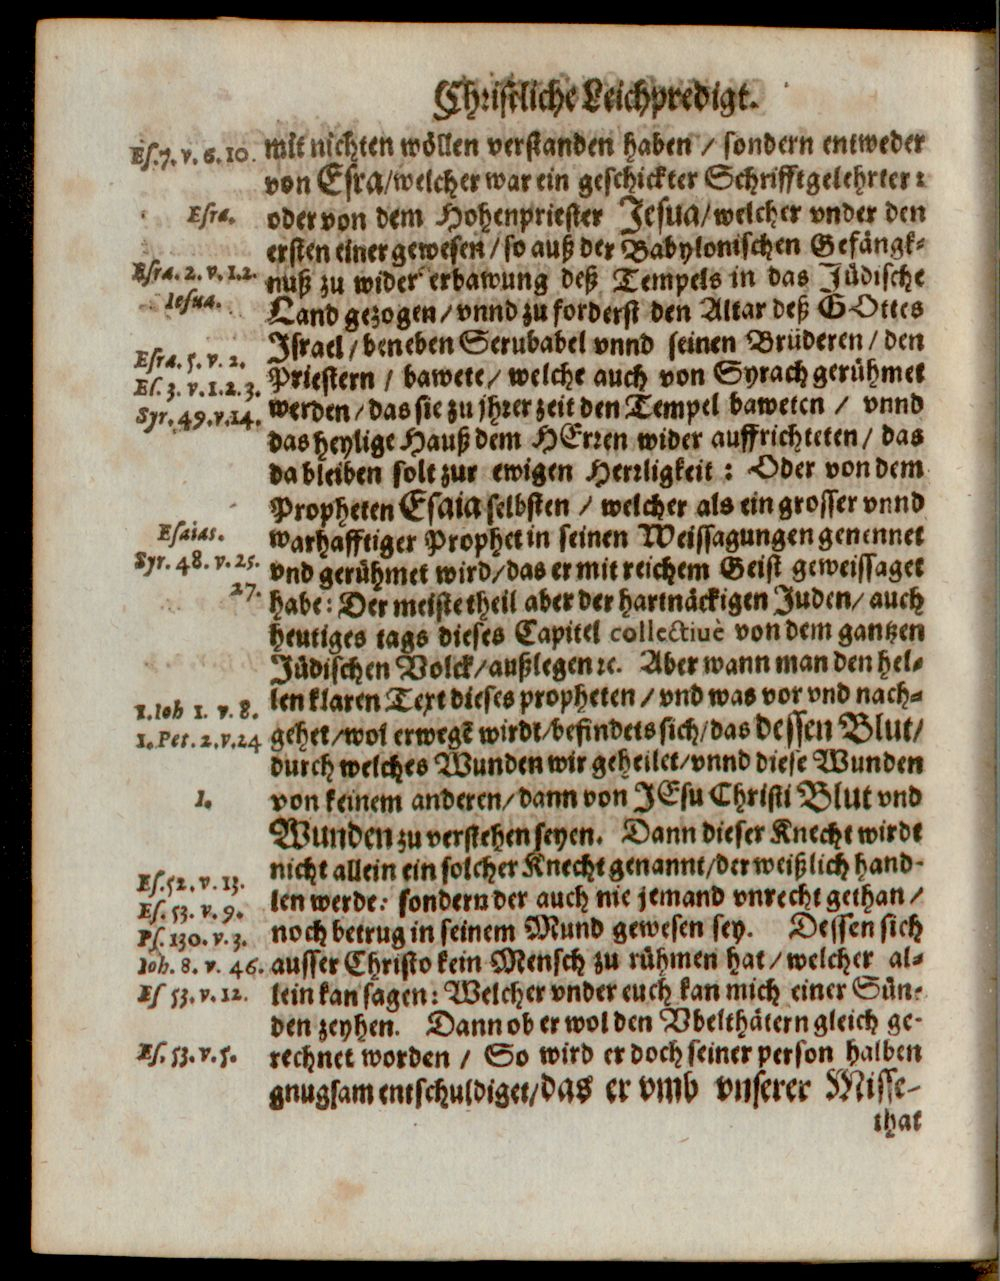 Christliche Leichpredigt.
Es. 7. v. 6. 10.
mit nichten wöllen verstanden haben / sondern entweder
von Esra/welcher war ein geschickter Schrifftgelehrter:
Esra.
oder von dem Hohenpriester Jesua/welcher vnder den
ersten einer gewesen/so auß der Babylonischen Gefängk-
Esra. 2. v. 1.2.
nuß zu wider erbawung deß Tempels in das Jüdische
Iesua.
Land gezogen/vnnd zu forderst den Altar deß GOttes
Israel/beneben Serubabel vnnd seinen Brüderen/den
Esra. 5. v. 2.
Es. 3. v. 1. 2. 3.
Priestern / bawete/ welche auch von Syrach gerühmet
Syr. 49. v. 14.
werden/das sie zu jhrer zeit den Tempel baweten / vnnd
das heylige Hauß dem HErren wider auffrichteten/das
da bleiben solt zur ewigen Herrligkeit: Oder von dem
Propheten Esaia selbsten / welcher als ein grosser vnnd
Esaias.
warhafftiger Prophet in seinen Weissagungen genennet
Syr. 48. v. 25.
vnd gerühmet wird/das er mit reichem Geist geweissaget
27.
habe: Der meiste theil aber der hartnäckigen Juden/auch
heutiges tags dieses Capitel collectiuè von dem gantzen
Jüdischen Volck/außlegen ꝛc. Aber wann man den hel-
len klaren Text dieses propheten / vnd was vor vnd nach-
1. Ioh 1. v. 8.
1. Pet. 2. v. 24
gehet/wol erwegẽ wirdt/befindets sich/das dessen Blut/
durch welches Wunden wir geheilet/vnnd diese Wunden
1.
von keinem anderen/dann von JEsu Christi Blut vnd
Wunden zu verstehen seyen. Dann dieser Knecht wirdt
nicht allein ein solcher Knecht genannt/der weißlich hand-
Es. 52. v. 13.
len werde: sondern der auch nie jemand vnrecht gethan/
Es. 53. v. 9.
noch betrug in seinem Mund gewesen sey. Dessen sich
Ps. 130. v. 3.
Ioh. 8. v. 46.
ausser Christo kein Mensch zu rühmen hat/welcher al-
Es 53. v. 12.
lein kan sagen: Welcher vnder euch kan mich einer Sün-
den zeyhen. Dann ob er wol den Vbelthätern gleich ge-
Es. 53. v. 5.
rechnet worden / So wird er doch seiner person halben
gnugsam entschuldiget/das er vmb vnserer Misse-
that